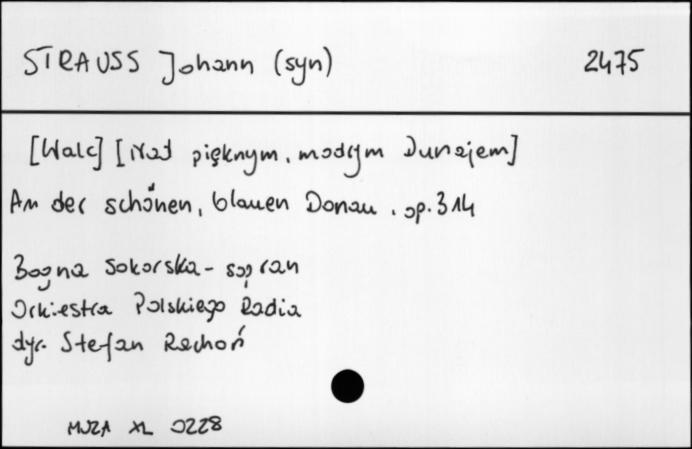 STRAUSS Johann (syn) 2475
[Walc] [Nad pięknym, modrym Dunajem]
An der schönen, blauen Donau, op. 314
Bogna Sokorska - sopran
Orkiestra Polskiego Radia
dyr. Stefan Rachoń
MUZA XL 0228